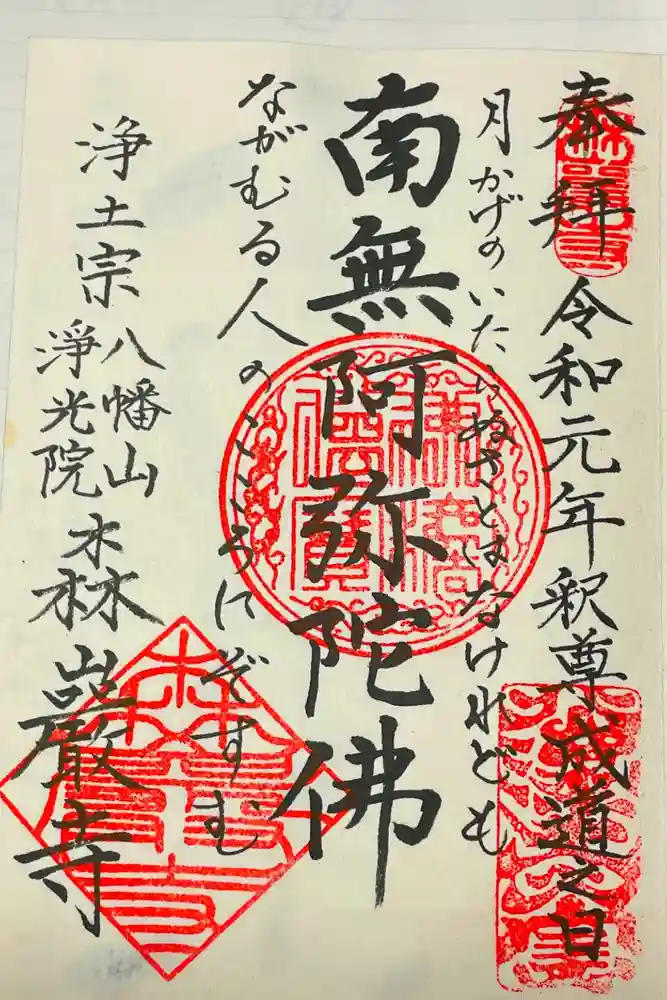 奉拝
令和元年釈尊成道之日
月かげのいたらぬさとはなけれども
南無阿弥陀佛
ながむる人のこころにぞすむ
浄土宗
八幡山
浄光院
森巖寺